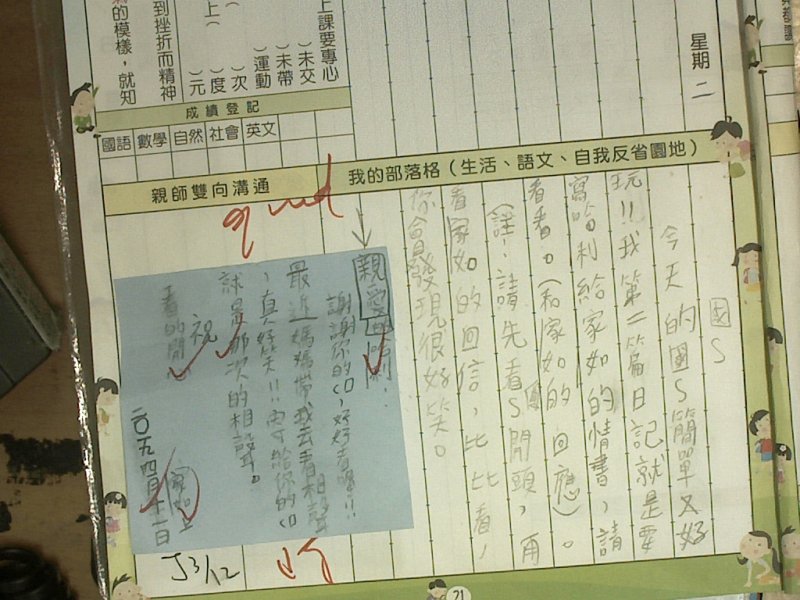 星期二
上課要專心
)未交
)未帶
)運動
)次
)度
)元
上(
到挫折而精神
的模樣，就知
成績登記
國語 數學 自然 社會 英文
我的部落格（生活、語文、自我反省園地）
國S
今天的國S簡單又好
玩!!我第二篇日記就是要
寫哈利給家如的情書，請
看看。(和家如的回應)。
(註：請先看S開頭，再
看家如的回信，比比看，
你會發現很好笑。
親師雙向溝通
good
親愛的
謝謝你的CD，好好看喔!!
最近媽媽帶我去看相聲
，真好笑!!給你的CD
就是那次的相聲。
祝
看的開
家如上
二〇一五四月十一日
21